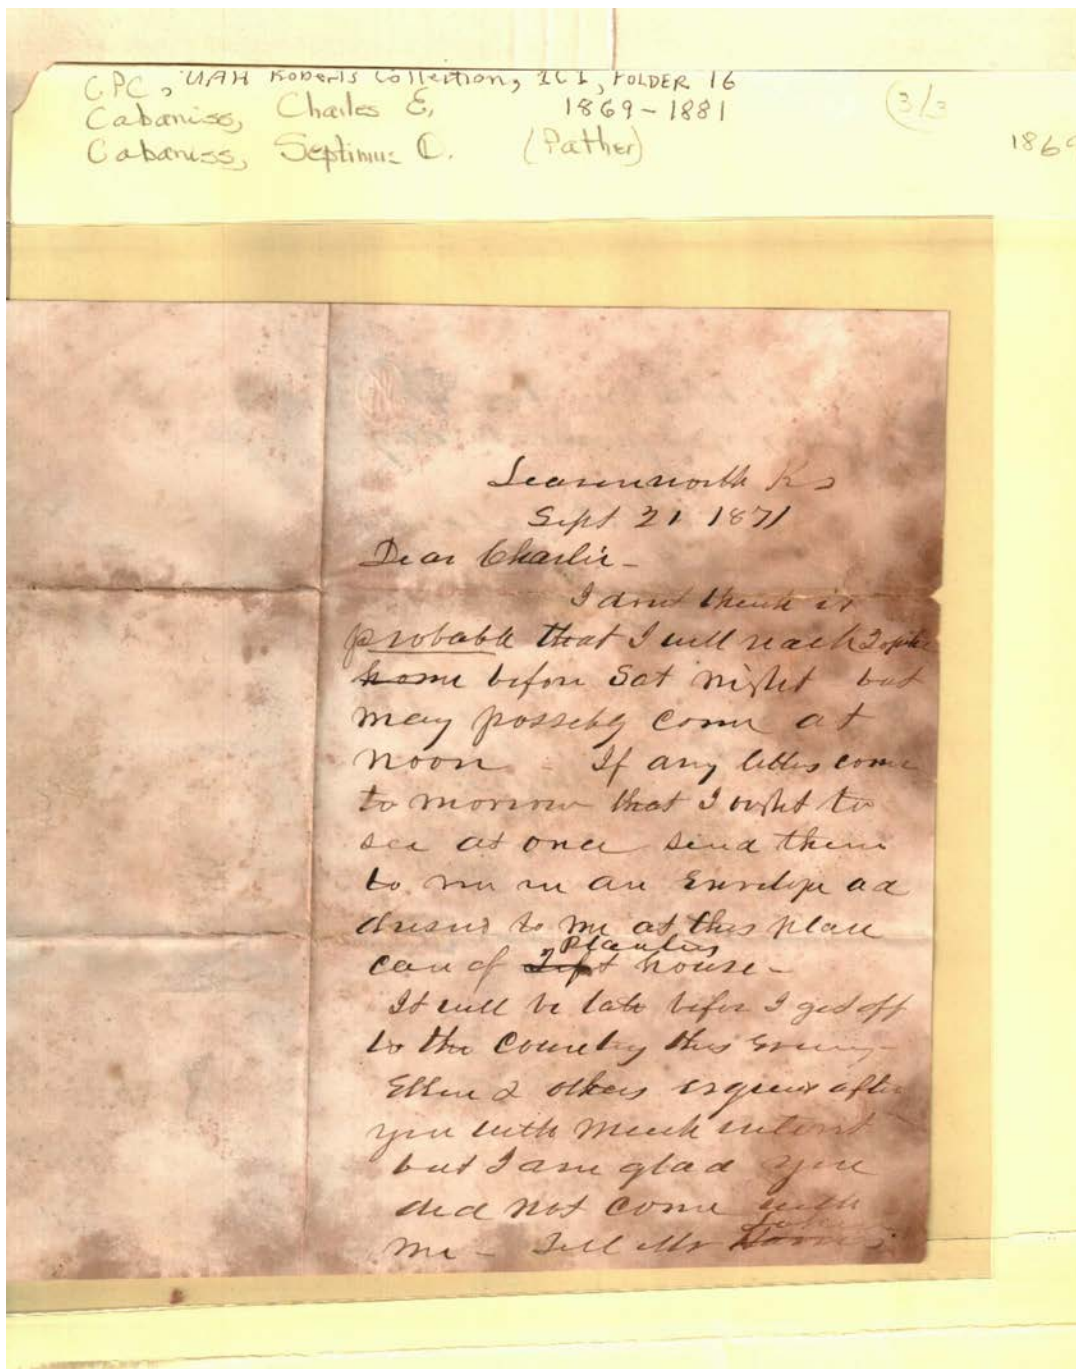 CPC, UAH Roberts Collection, 1C1, FOLDER 16
Cabaniss, Charles E, 1869-1881 (3/3)
Cabaniss, Septimus D. (Father) 186
Leavenworth Ks
Sept 21 1871
Dear Charlie -
I dont think it
probable that I will reach
home before Sat night but
may possibly come at
noon - If any letters come
to morrow that I ought to
see at once send them
to me in an Envelope ad
dressed to me at this place
Planters
care of house -
It will be late before I get off
to the Country this Evening -
Ellen & others enquire after
you with much interest
but I am glad you
did not come with
me - Tell Mr